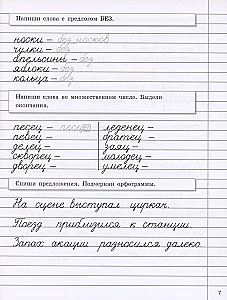 Напиши слова с предлогом БЕЗ.
носки – без носков
чулки – без
апельсины – без
яблоки – без
кольца – без
Напиши слова во множественном числе. Выдели
окончания.
песец – песцы леденец –
певец – братец –
делец – заяц –
скворец – молодец –
дворец – умелец –
Спиши предложения. Подчеркни орфограммы.
На сцене выступал циркач.
Поезд приблизился к станции.
Запах акации разносился далеко.
7